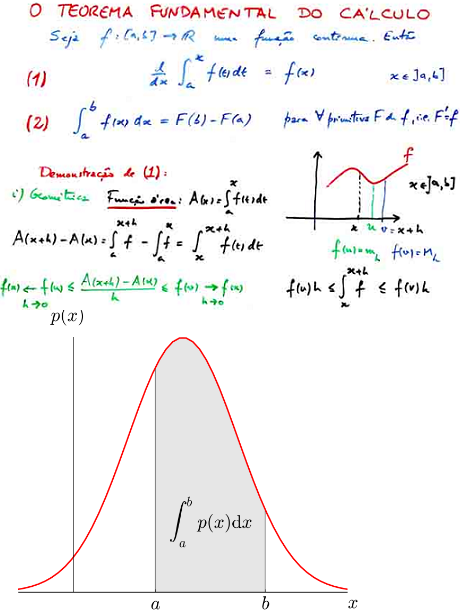 O TEOREMA FUNDAMENTAL DO CÁLCULO
Seja f: [a,b] → ℝ uma função contínua. Então
(1) d/dx ∫_a^x f(t)dt = f(x) x ∈ ]a,b]
(2) ∫_a^b f(x) dx = F(b) - F(a) para ∀ primitiva F de f, i.e. F' = f
Demonstração de (1):
i) Geométrica Função área: A(x) = ∫_a^x f(t)dt
f
x ∈ ]a,b]
A(x+h) - A(x) = ∫_a^{x+h} f - ∫_a^x f = ∫_x^{x+h} f(t)dt
x u v = x+h
f(u) = m_h f(v) = M_h
f(x) ← f(u) ≤ (A(x+h) - A(x))/h ≤ f(v) → f(x)
h→0 h→0
f(u)h ≤ ∫_x^{x+h} f ≤ f(v)h
p(x)
∫_a^b p(x)dx
a b x